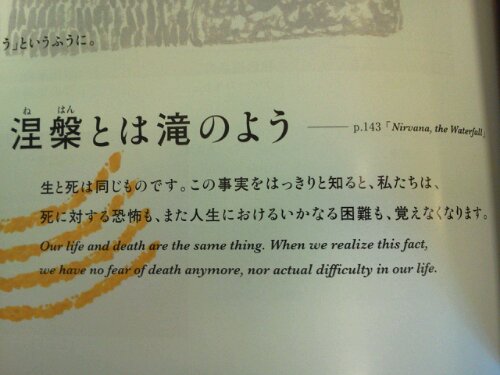 う」というふうに。
ね はん
涅槃とは滝のよう —— p.143「Nirvana, the Waterfall」
生と死は同じものです。この事実をはっきりと知ると、私たちは、
死に対する恐怖も、また人生におけるいかなる困難も、覚えなくなります。
Our life and death are the same thing. When we realize this fact,
we have no fear of death anymore, nor actual difficulty in our life.